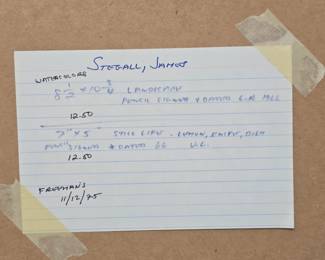 STEGALL, JAMES
WATERCOLORS
8 1/2 x 10 3/4 LANDSCAPE
PENCIL SIGNED & DATED
12.50
7" x 5" STILL LIFE - LEMON, KNIFE, DISH
PENCIL SIGNED & DATED 66 U.L.
12.50
FREEMANS
11/12/75